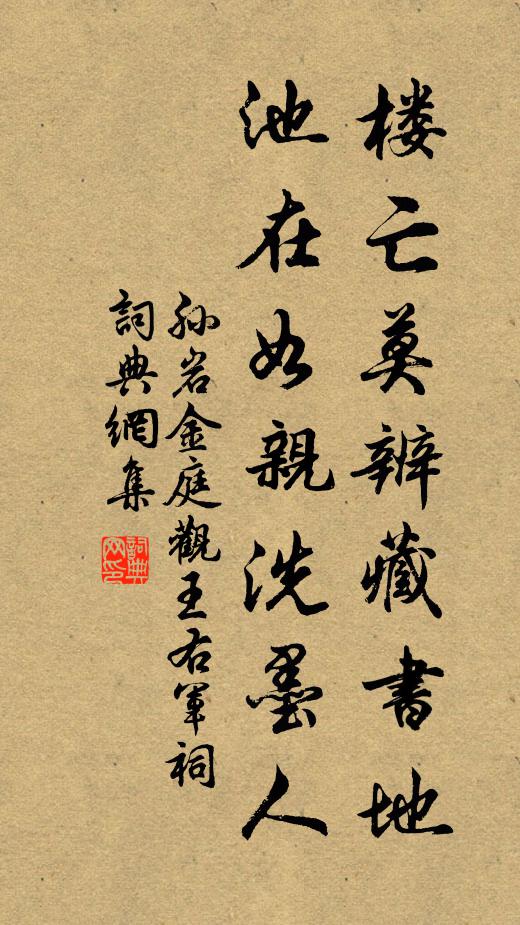 楼亡莫辨藏書地
池在如親洗墨人
孙岩金庭觀王右軍祠
詞典網集
詞典网印